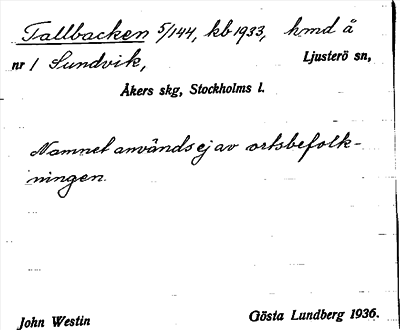 Tallbacken 5/144, kb 1933, hmd å
nr 1 Sundvik, Ljusterö sn,
Åkers skg, Stockholms l.
Namnet används ej av ortsbefolk-
ningen.
John Westin Gösta Lundberg 1936.